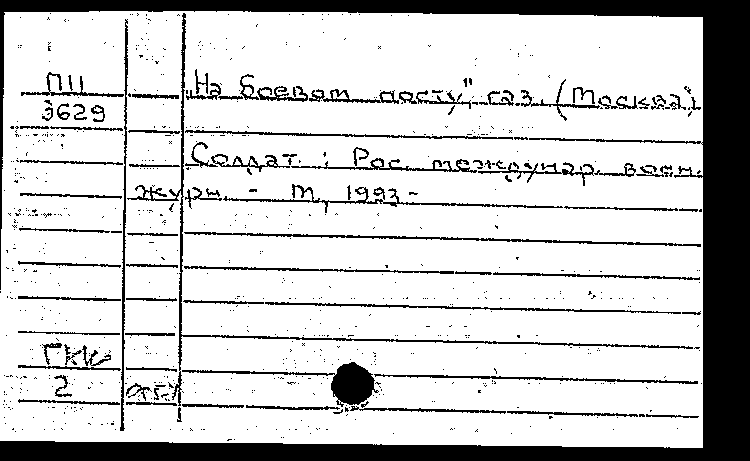 П11
3629
„На боевом посту", газ. (Москва)
Солдат. : Рос. междунар. воен.
журн. - М., 1993-
ГКИ
2